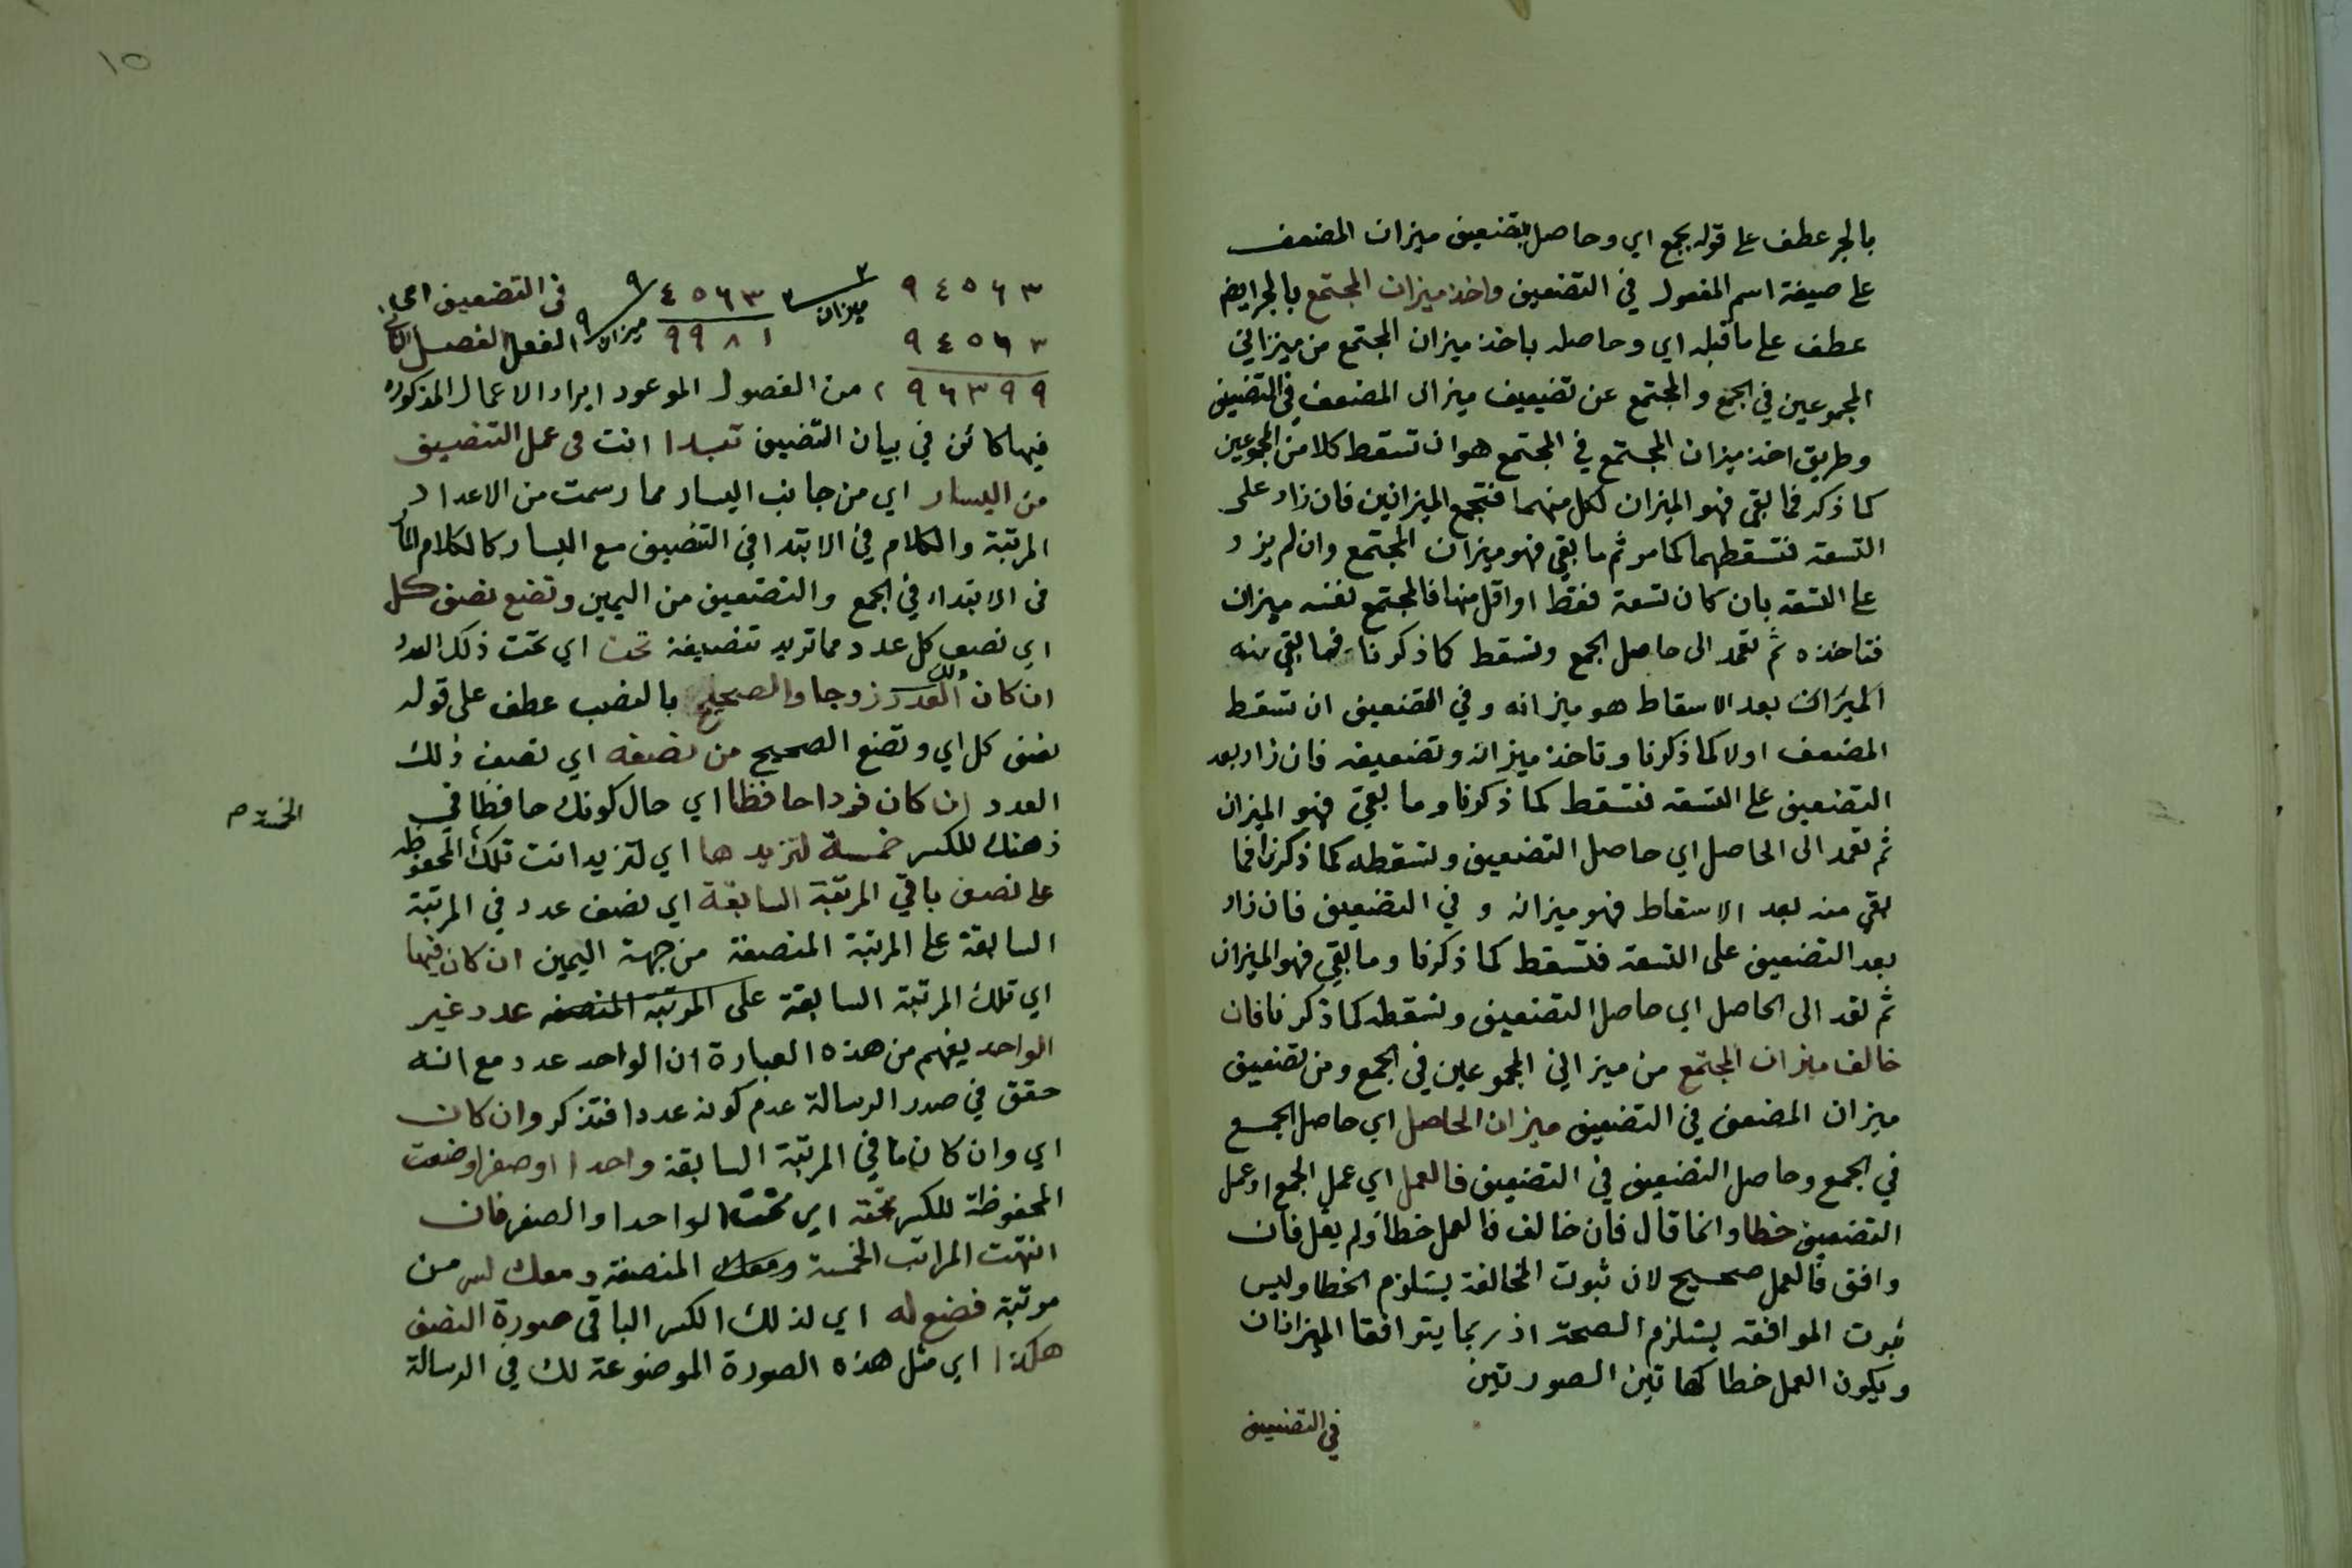 بالجر عطف على قوله بجمع اي وحاصل بتضعيف ميزان المضعف
على صيغة اسم المفعول في التضعيف واخذ ميزان المجتمع بالجر ايضا
عطف على ما قبله اي وحاصله باخذ ميزان المجتمع من ميزاني
المجموعين في الجمع والمجتمع عن تضعيف ميزان المضعف في التضعيف
وطريق اخذ ميزان المجتمع في المجتمع هو ان تسقط كلا من المجموعين
كما ذكر فما بقى فهو الميزان لكل منهما فتجمع الميزانين فان زاد على
التسعه فتسقطهما كما مر ثم ما بقي فهو ميزان المجتمع وان لم يزد
على التسعه بان كان تسعة فقط او اقل منها فالمجتمع نفسه ميزان
فتاخذه ثم تعمد الى حاصل الجمع وتسقط كما ذكرنا فما بقي منه
الميزان بعد الاسقاط هو ميزانه وفي التضعيف ان تسقط
المضعف اولا كما ذكرنا وتاخذ ميزانه وتضعيفه فان زاد بعد
التضعيف على التسعه فتسقط كما ذكرنا وما بقي فهو الميزان
ثم تعمد الى الحاصل اي حاصل التضعيف وتسقطه كما ذكرنا فما
بقي منه بعد الاسقاط فهو ميزانه وفي التضعيف فان زاد
بعد التضعيف على التسعه فتسقط كما ذكرنا وما بقي فهو الميزان
ثم تعد الى الحاصل اي حاصل التضعيف وتسقطه كما ذكرنا فان
خالف ميزان المجتمع من ميزاني المجموعين في الجمع ومن تضعيف
ميزان المضعف في التضعيف ميزان الحاصل اي حاصل الجمع
في الجمع وحاصل التضعيف في التضعيف فالعمل اي عمل الجمع او عمل
التضعيف خطا وانما قال فان خالف فالعمل خطا ولم يقل فان
وافق فالعمل صحيح لان ثبوت المخالفة يستلزم الخطا وليس
ثبوت الموافقه يستلزم الصحة اذ ربما يتوافقا الميزانان
ويكون العمل خطا كهاتين الصورتين
في التضعيف
١٥
٩٤٥٦٣ ٣ ميزان ٣ ٤٥٦٣ ٩ في التضعيف
٩٤٥٦٣ ٩٩٨١ ميزان ٩ الفعل الفصل
٩٦٣٩٩ من الفصول الموعود ايراد الاعمال المذكوره
فيها كائن في بيان التضيف تبدا انت فى عمل التنصيف
من اليسار اي من جانب اليسار مما رسمت من الاعداد
المرتبة والكلام في الابتدا في التنصيف مع اليسار كالكلام
فى الابتداء في الجمع والتضعيف من اليمين وتضع نصف كل
اي نصف كل عدد مما تريد تنصيفة تحت اي تحت ذلك العدد
ان كان ذلك العدد زوجا والصحيح بالنصب عطف على قوله
نصف كل اي وتضع الصحيح من نصفه اي نصف ذلك
العدد ان كان فردا حافظا اي حال كونك حافظا في
ذهنك للكسر خمسة لتزيدها اي لتزيد انت تلك المحفوظه
على نصف باقي المرتبة السابقة اي نصف عدد في المرتبة
السابقة على المرتبة المنصفة من جهة اليمين ان كان فيها
اي تلك المرتبة السابقة على المرتبة المنصفه عدد غير
الواحد يفهم من هذه العبارة ان الواحد عدد مع انه
حقق في صدر الرسالة عدم كونه عددا فتذكر وان كان
اي وان كان ما في المرتبة السابقة واحدا او صفرا وضعت
المحفوظة للكسر تحته اي تحت الواحد او الصفر فان
انتهت المراتب الخمسة ومعك المنصفة ومعك كسر من
مرتبة فضع له اي لذلك الكسر الباقى صورة النصف
هكذا اي مثل هذه الصورة الموضوعة لك في الرسالة
الخمسة م